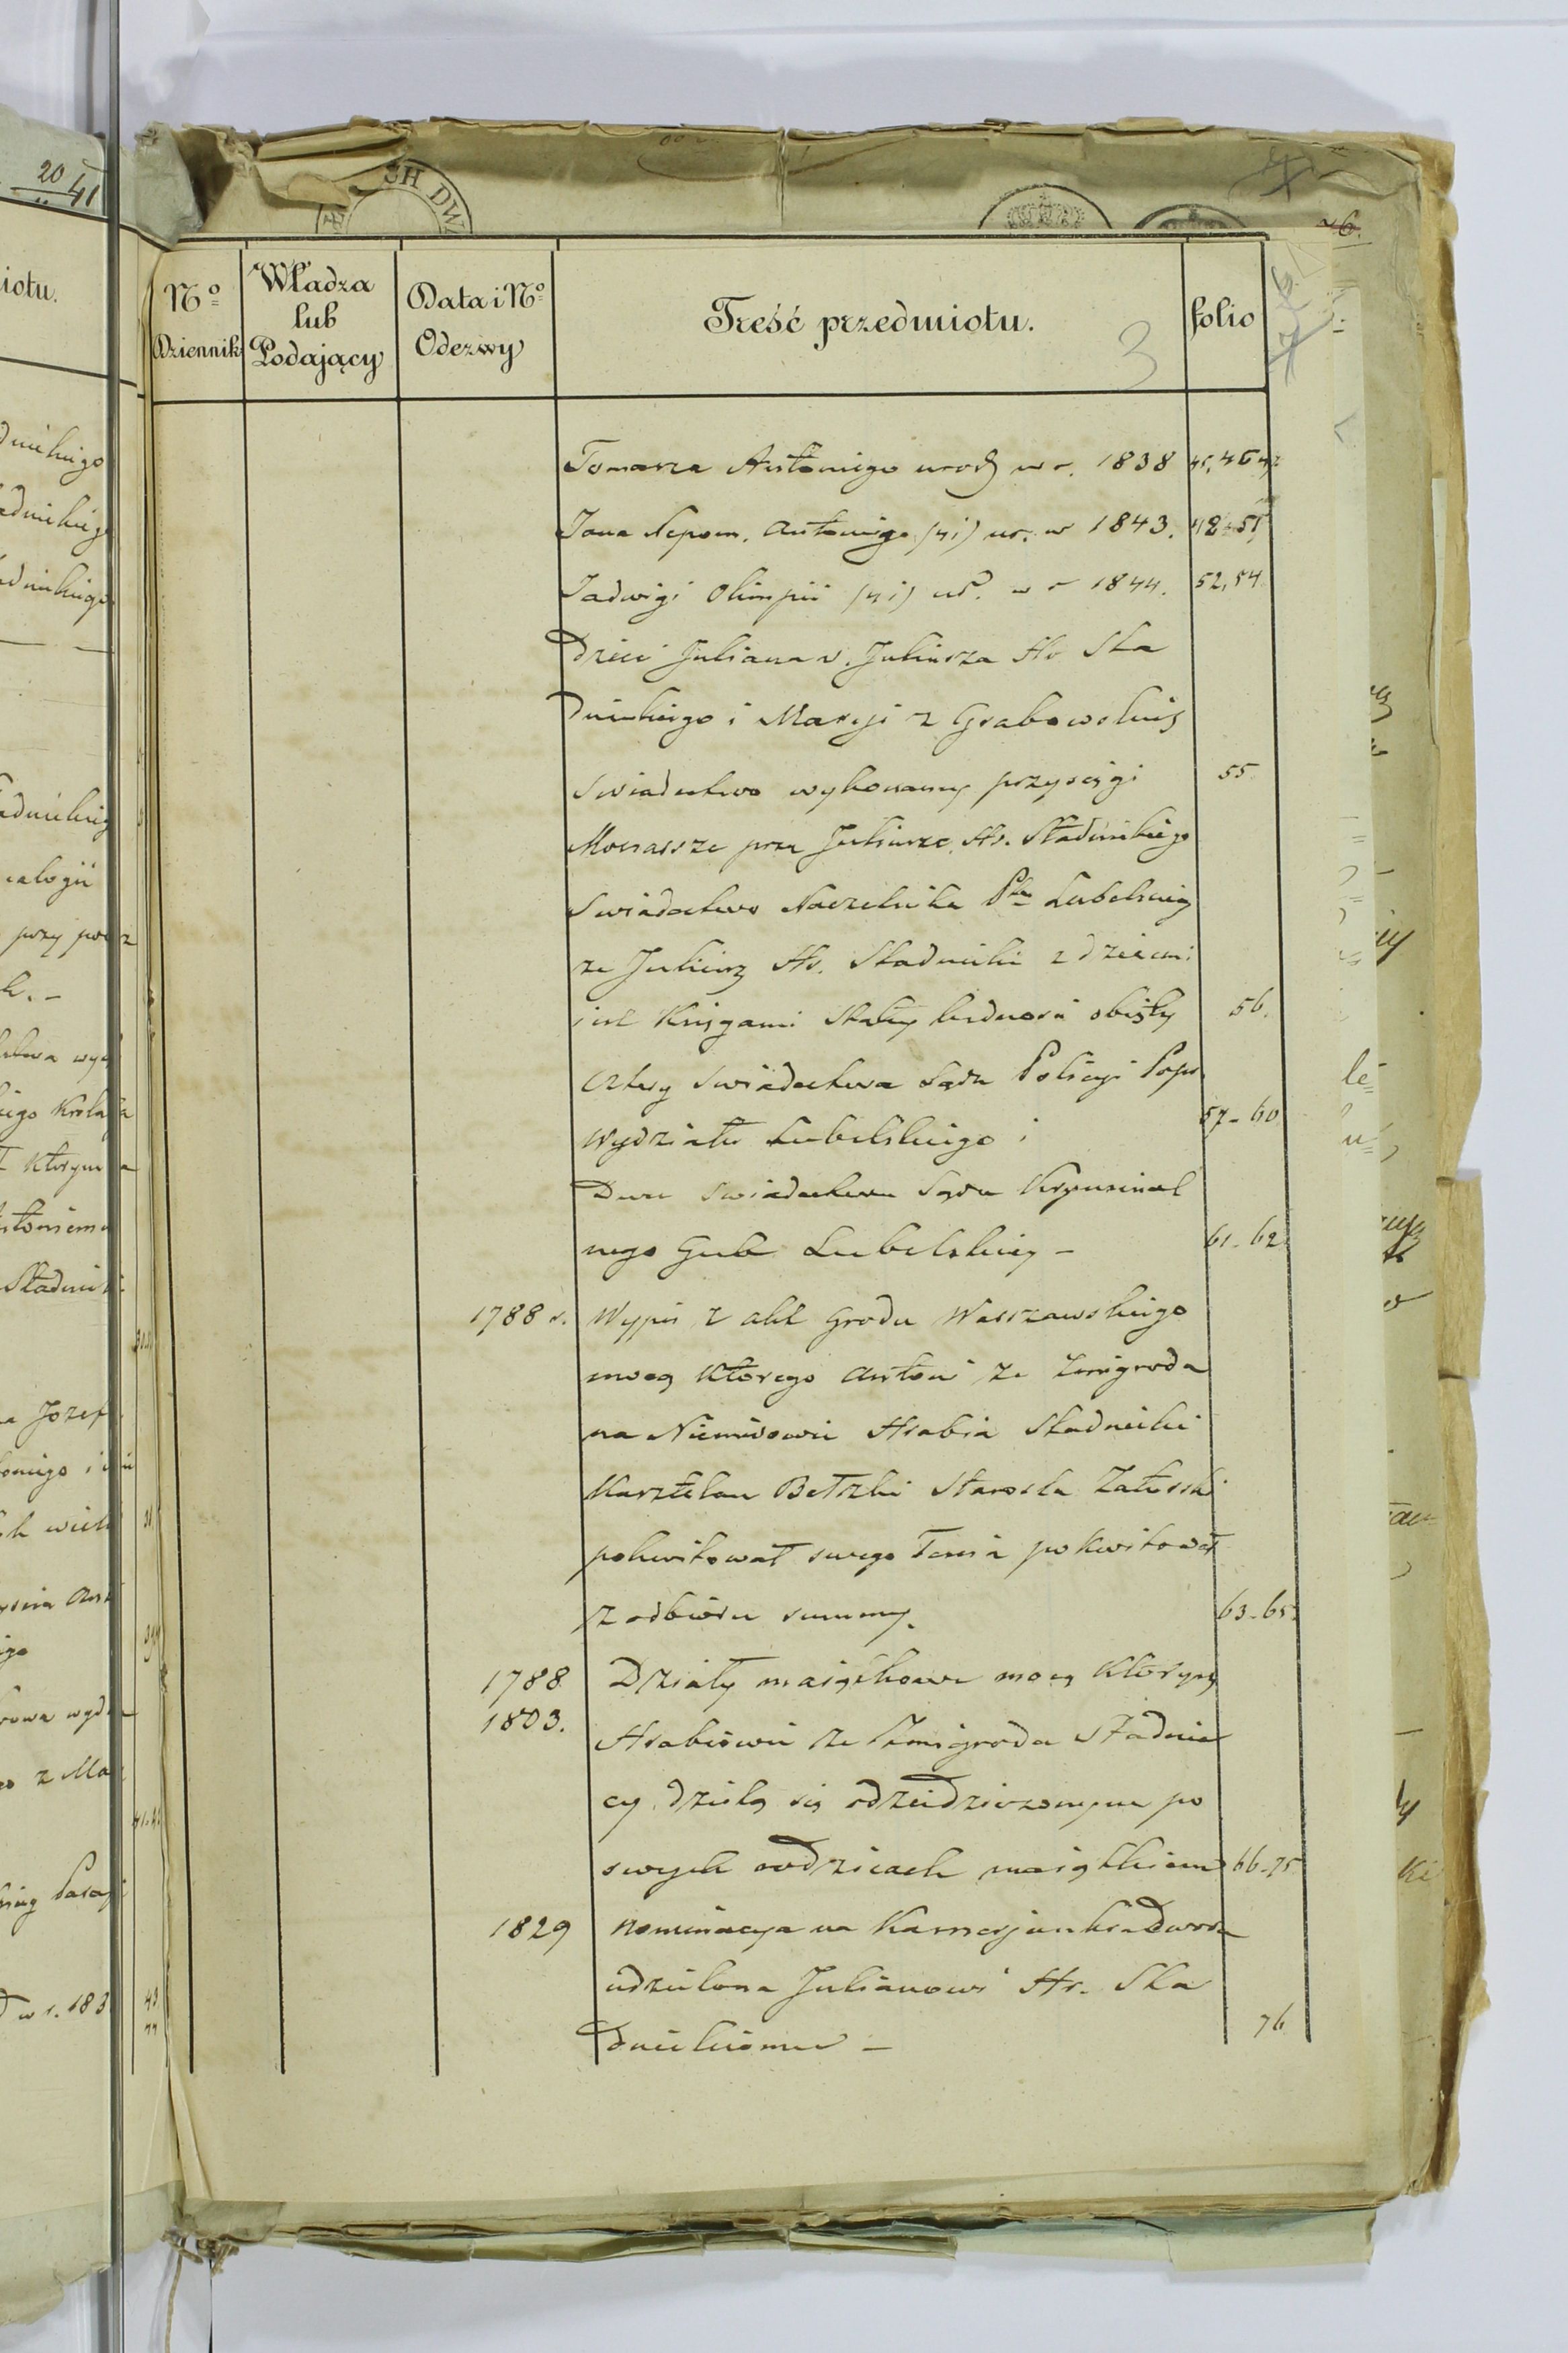 20 41
iotu.
SH DW
26.
No Dziennik
Władza lub Podający
Data i No Odezwy
Treść przedmiotu.
folio
3
Tomasza Antoniego urodz w r. 1838 45, 46 47
Jana Nepom. Antoniego (4i) ur. w 1843. 48-51
Jadwigi Olimpii (4i) ur. w r 1844. 52, 54
Dzieci Juliana v. Juliusza Hr Sta
dnickiego i Maryi z Grabowskich
Swiadectwo wykonanej przysięgi 55.
Monarsze przez Juliusza Hr. Stadnickiego
Swiadectwo Naczelnika Ptu Lubelskieg
ze Juliusz Hr. Stadnicki z dziećmi
jest Księgami Stałej ludności objęty 56.
cztery Swiadectwa Sądu Policyi Popr
Wydziału Lubelskiego i 57-60
Dwa Swiadectwa Sądu Kryminal
nego Gub Lubelskiej - 61-62
1788 r. Wypis z akt Grodu Warszawskiego
mocą którego Antoni ze Zmigroda
na Niemirowie Hrabia Stadnicki
Kasztelan Bełzki Starosta
pokwitował swego Tescia pokwitował
z odbioru summy. 63-65
1788 Działy maiątkowe mocą których
1803. Hrabiowie ze Zmigroda Stadnic
cy dzielą się odzeidziczonym po
swych rodzicach maiątkiem 66-75
1829 Nominacya na Kamerjunkra Dworu
udzielona Julianowi Hr. Sta
dnickiemu - 76